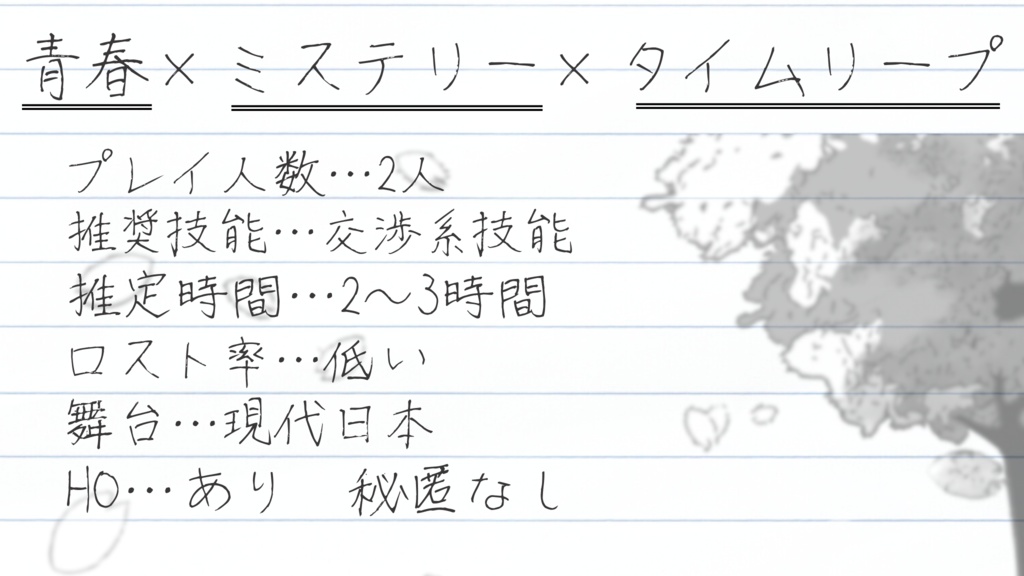 青春×ミステリー×タイムリープ
プレイ人数…2人
推奨技能…交渉系技能
推定時間…2～3時間
ロスト率…低い
舞台…現代日本
HO…あり　秘匿なし